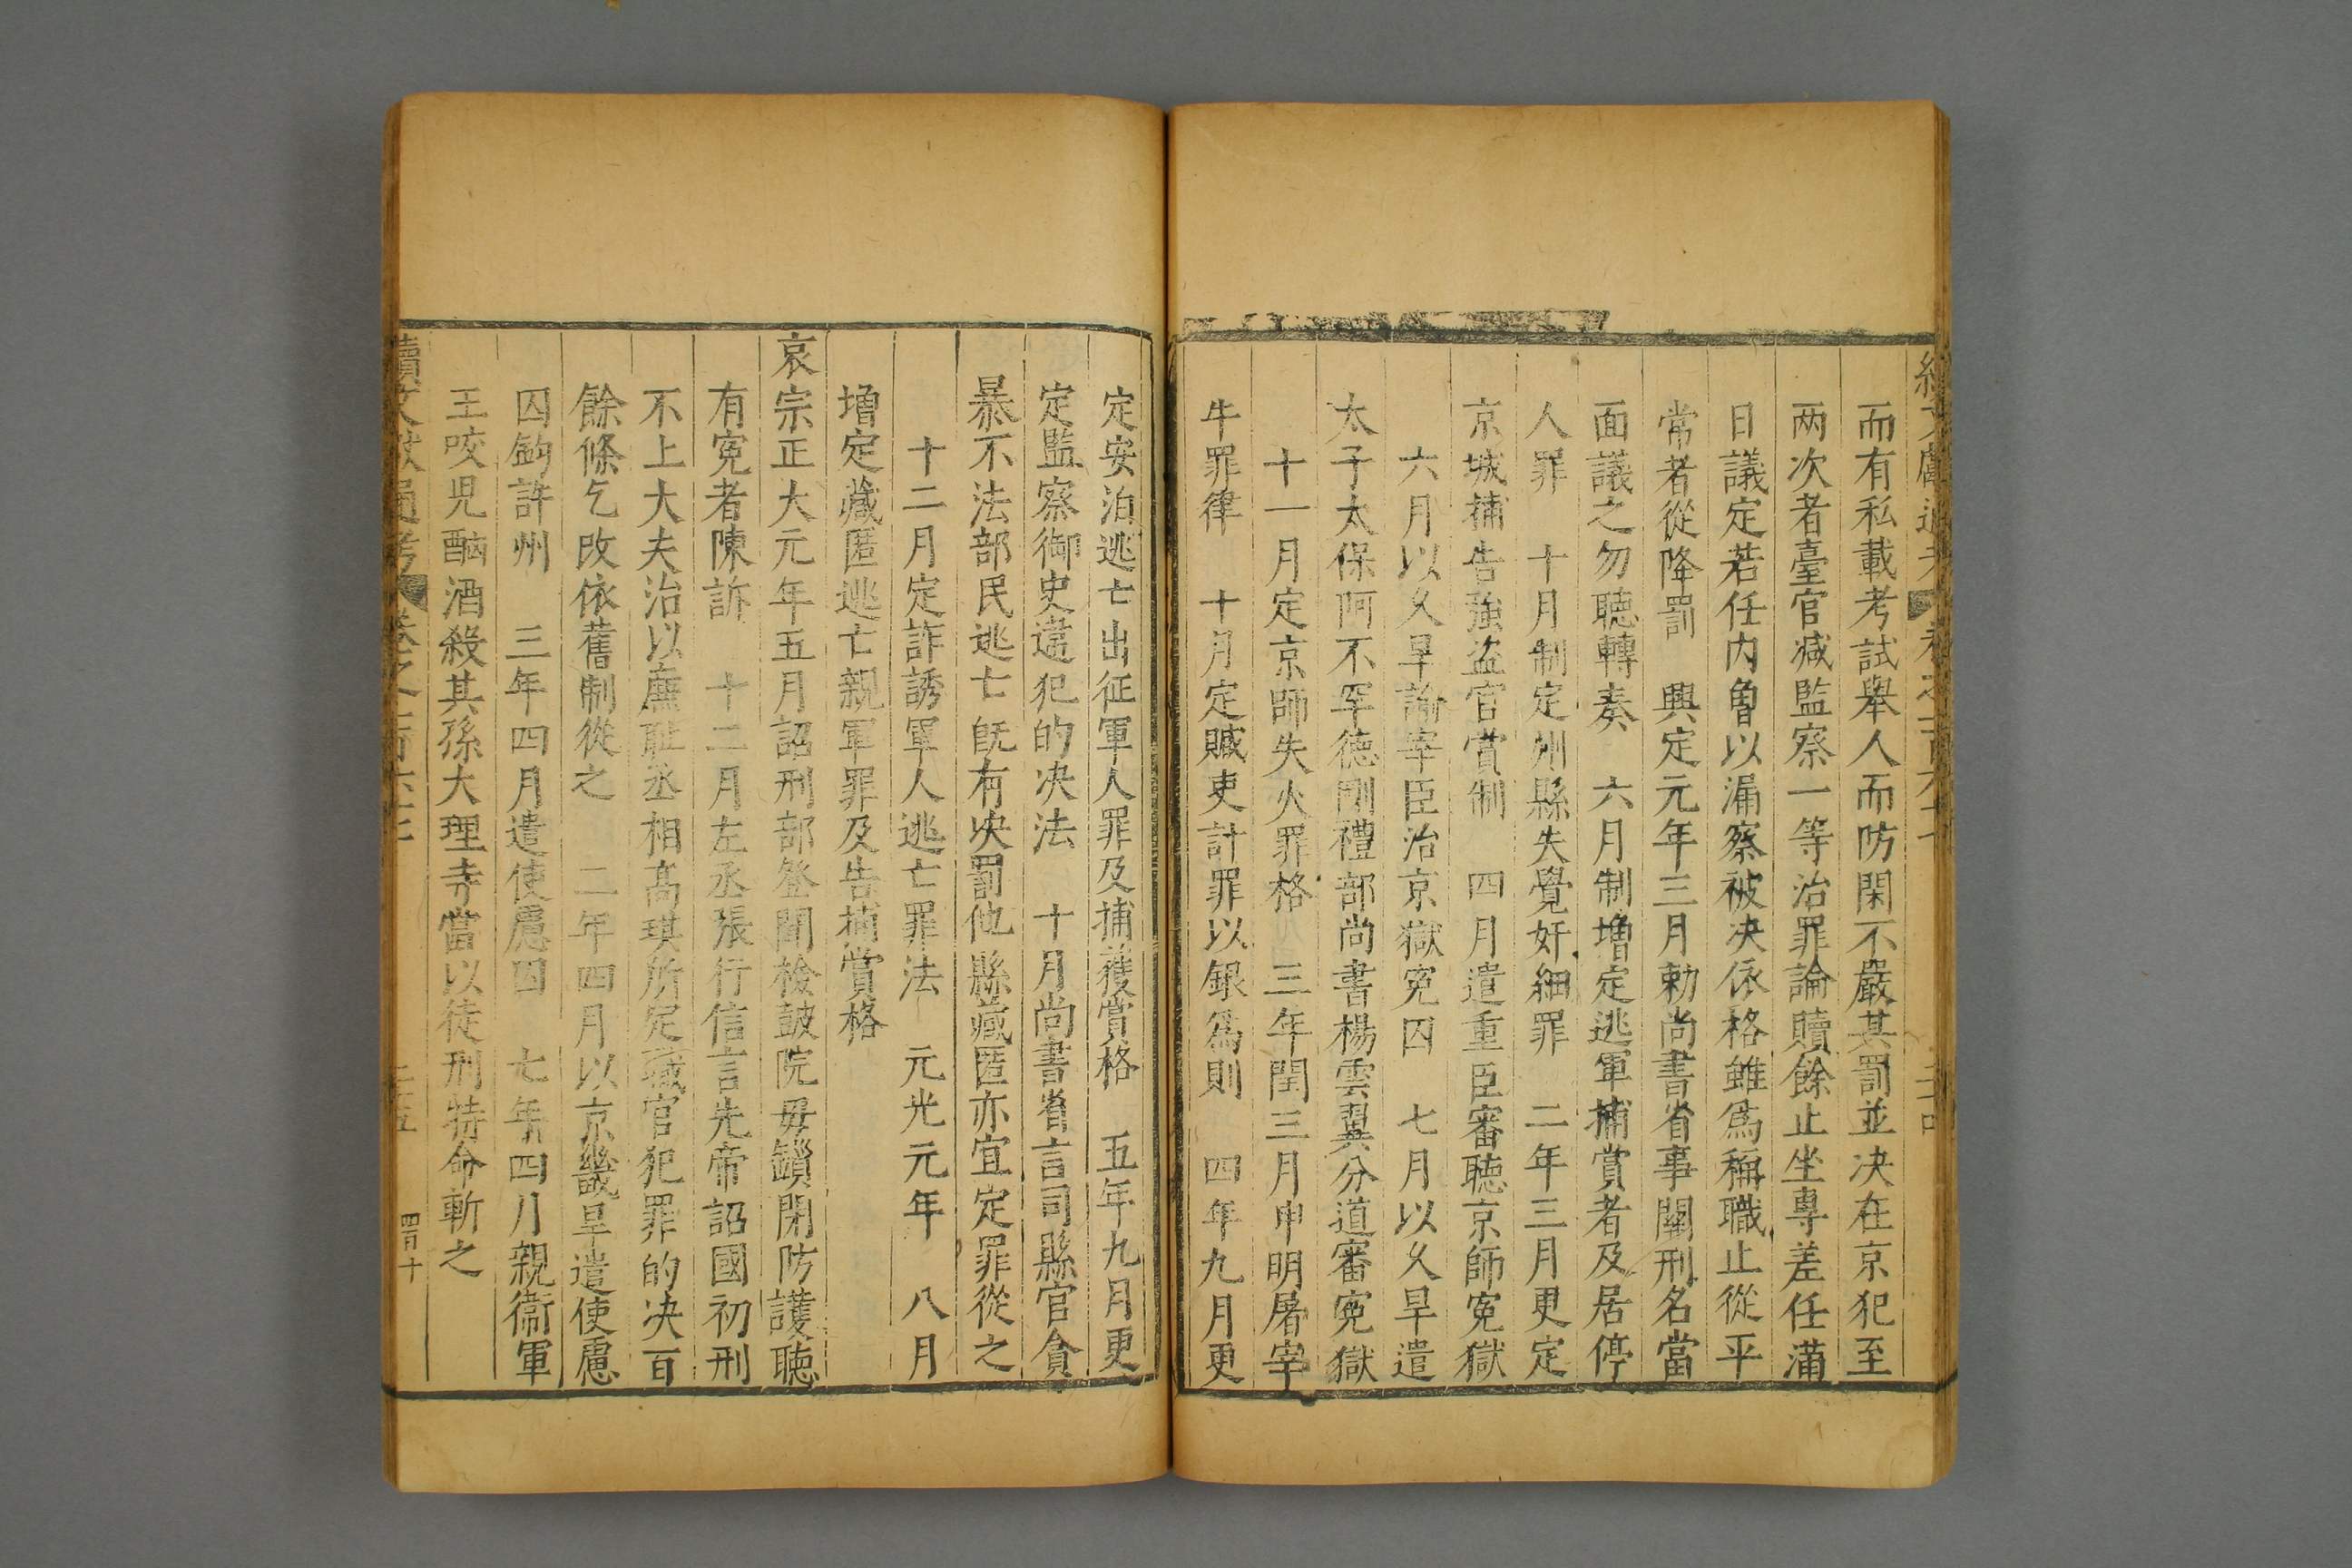 而有私載考試舉人而防閑不嚴其罰並决在京犯至
两次者臺官减監察一等治罪論贖餘止坐專差任滿
日議定若任内曾以漏察被决依格雖爲稱職止從平
常者從降罰　興定元年三月勅尚書省事關刑名當
面議之勿聽轉奏　六月制增定逃軍捕賞者及居停
人罪　十月制定州縣失覺奸細罪　二年三月更定
京城捕告強盗官賞制　四月遣重臣審聽京師寃獄
六月以久旱諭宰臣治京獄寃囚　七月以久旱遣
太子太保阿不罕德剛禮部尚書楊雲翼分道審寃獄
十一月定京師失火罪格　三年閏三月申明屠宰
牛罪律　十月定贓吏計罪以銀爲則　四年九月更
定安泊逃亡出征軍人罪及捕獲賞格　五年九月更
定監察御史違犯的决法　十月尚書省言司縣官貪
暴不法部民逃亡旣有决罰他縣藏匿亦宜定罪從之
十二月定詐誘軍人逃亡罪法　元光元年　八月
增定藏匿逃亡親軍罪及告捕賞格
哀宗正大元年五月詔刑部登聞檢鼓院毋鎖閉防護聽
有寃者陳訴　十二月左丞張行信言先帝詔國初刑
不上大夫治以廉耻丞相高琪所定職官犯罪的决百
餘條乞改依舊制從之　二年四月以京畿旱遣使慮
囚鈞許州　三年四月遣使慮囚　七年四月親衞軍
王咬児酗酒殺其孫大理寺當以徒刑特命斬之
續文獻通考　卷之一百六十七
四百十